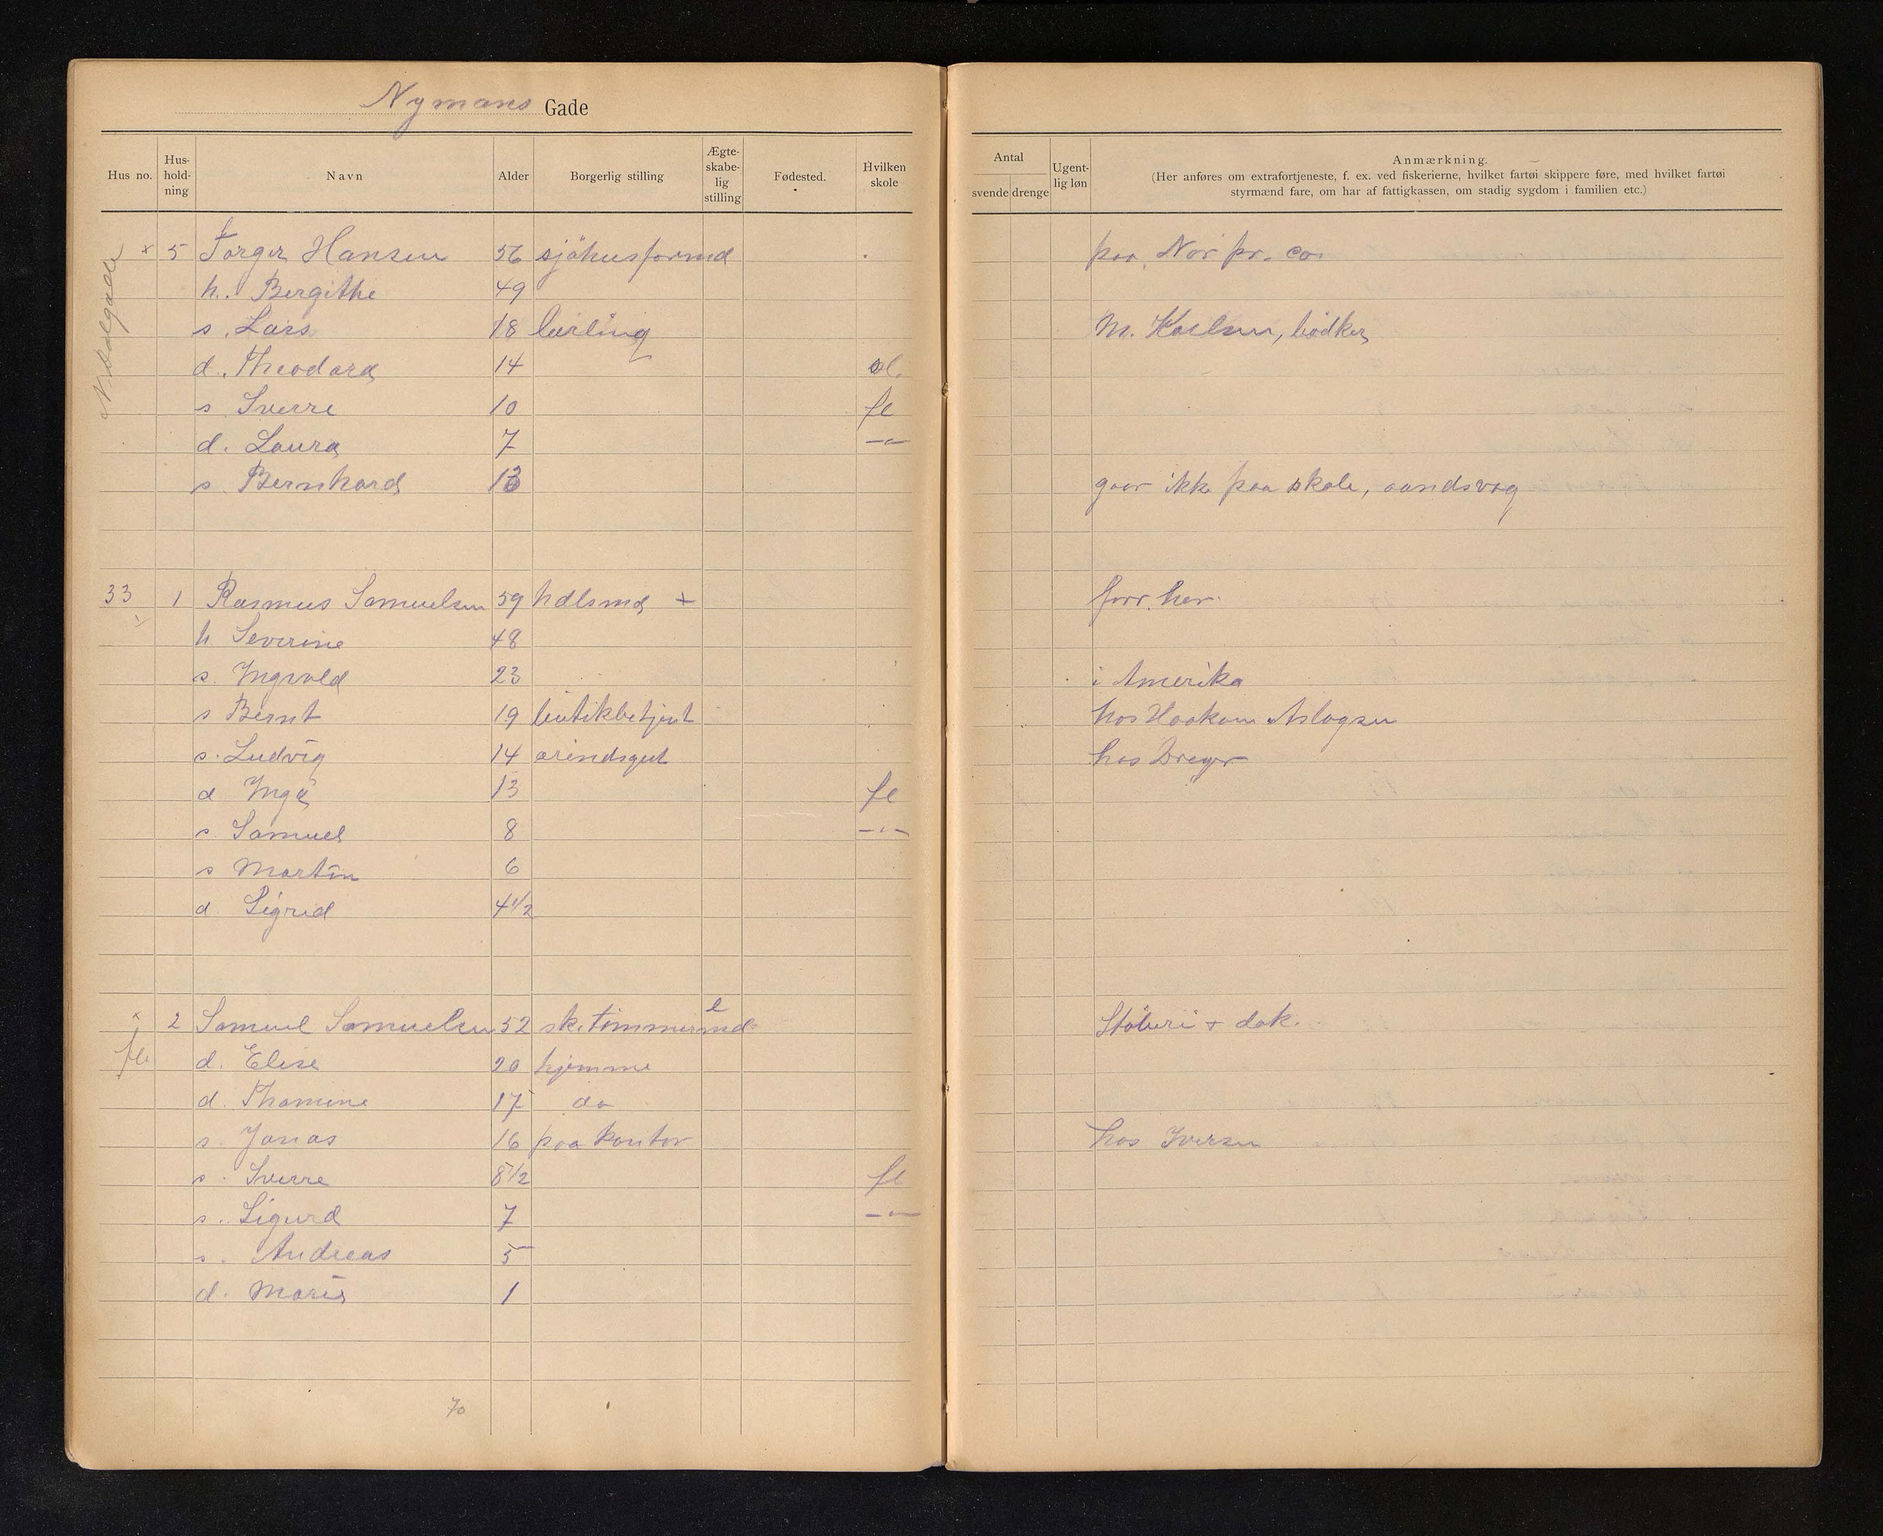 Nymans Gade
Hus no. Hus-hold-ning Navn Alder Borgerlig stilling Ægte-skabe-lig stilling Fødested. Hvilken skole Antal svende drenge Ugent-lig løn Anmærkning.
(Her anføres om extrafortjeneste, f. ex. ved fiskerierne, hvilket fartøi skippere føre, med hvilket fartøi
styrmænd fare, om har af fattigkassen, om stadig sygdom i familien etc.)
x 5 Torger Hansen 56 sjøhusformd paa Nor pr. co.
h. Bergithe 49
s. Lars 18 lærling M. Karlsen, bødker
d. Theodora 14
s Sverre 10 fl
d. Laura 7 —"—
s. Bernhard 13 gaar ikke paa skole, aandsvag
33 1 Rasmus Samuelsen 59 hdlsmd + forr. her.
h Severine 48
s. Ingvald 23 i Amerika
s Bernt 19 butikbetjent hos Haakon Aslagsen
s. Ludvig 14 ærindsgut hos Dreyer
d Inga 13 fl
s. Samuel 8 —"—
s Martin 6
d Sigrid 4 1/2
x 2 Samuel Samuelsen 52 sk. tømmermd e Støberi + dok.
d. Elise 20 hjemme
d. Thomine 17 do
s. Jonas 16 paa kontor hos Iversen
s. Sverre 8 1/2 fl
s. Sigurd 7 —"—
s. Andreas 5
d. Marie 1
70